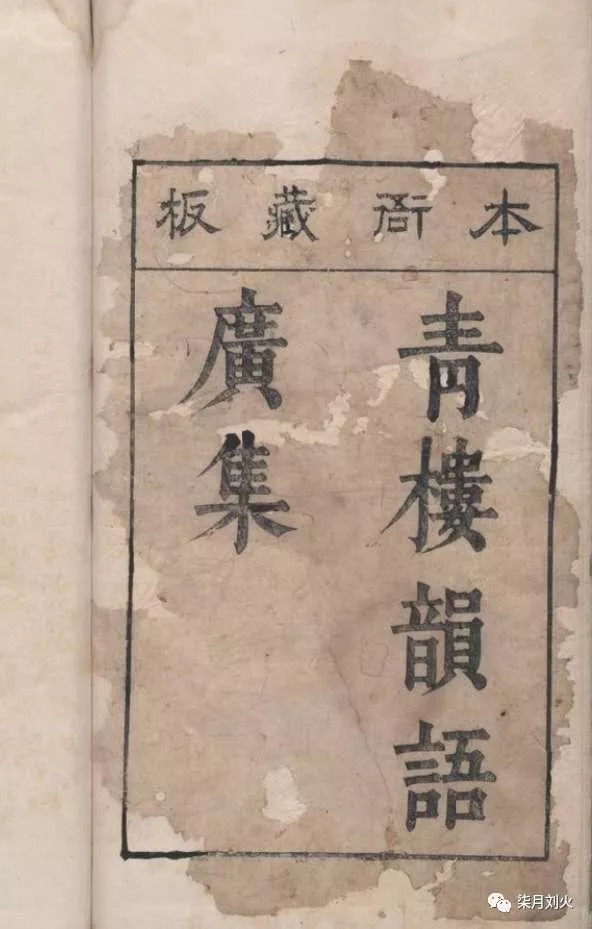 本衙藏板
青樓韻語
廣集
柒月刘火